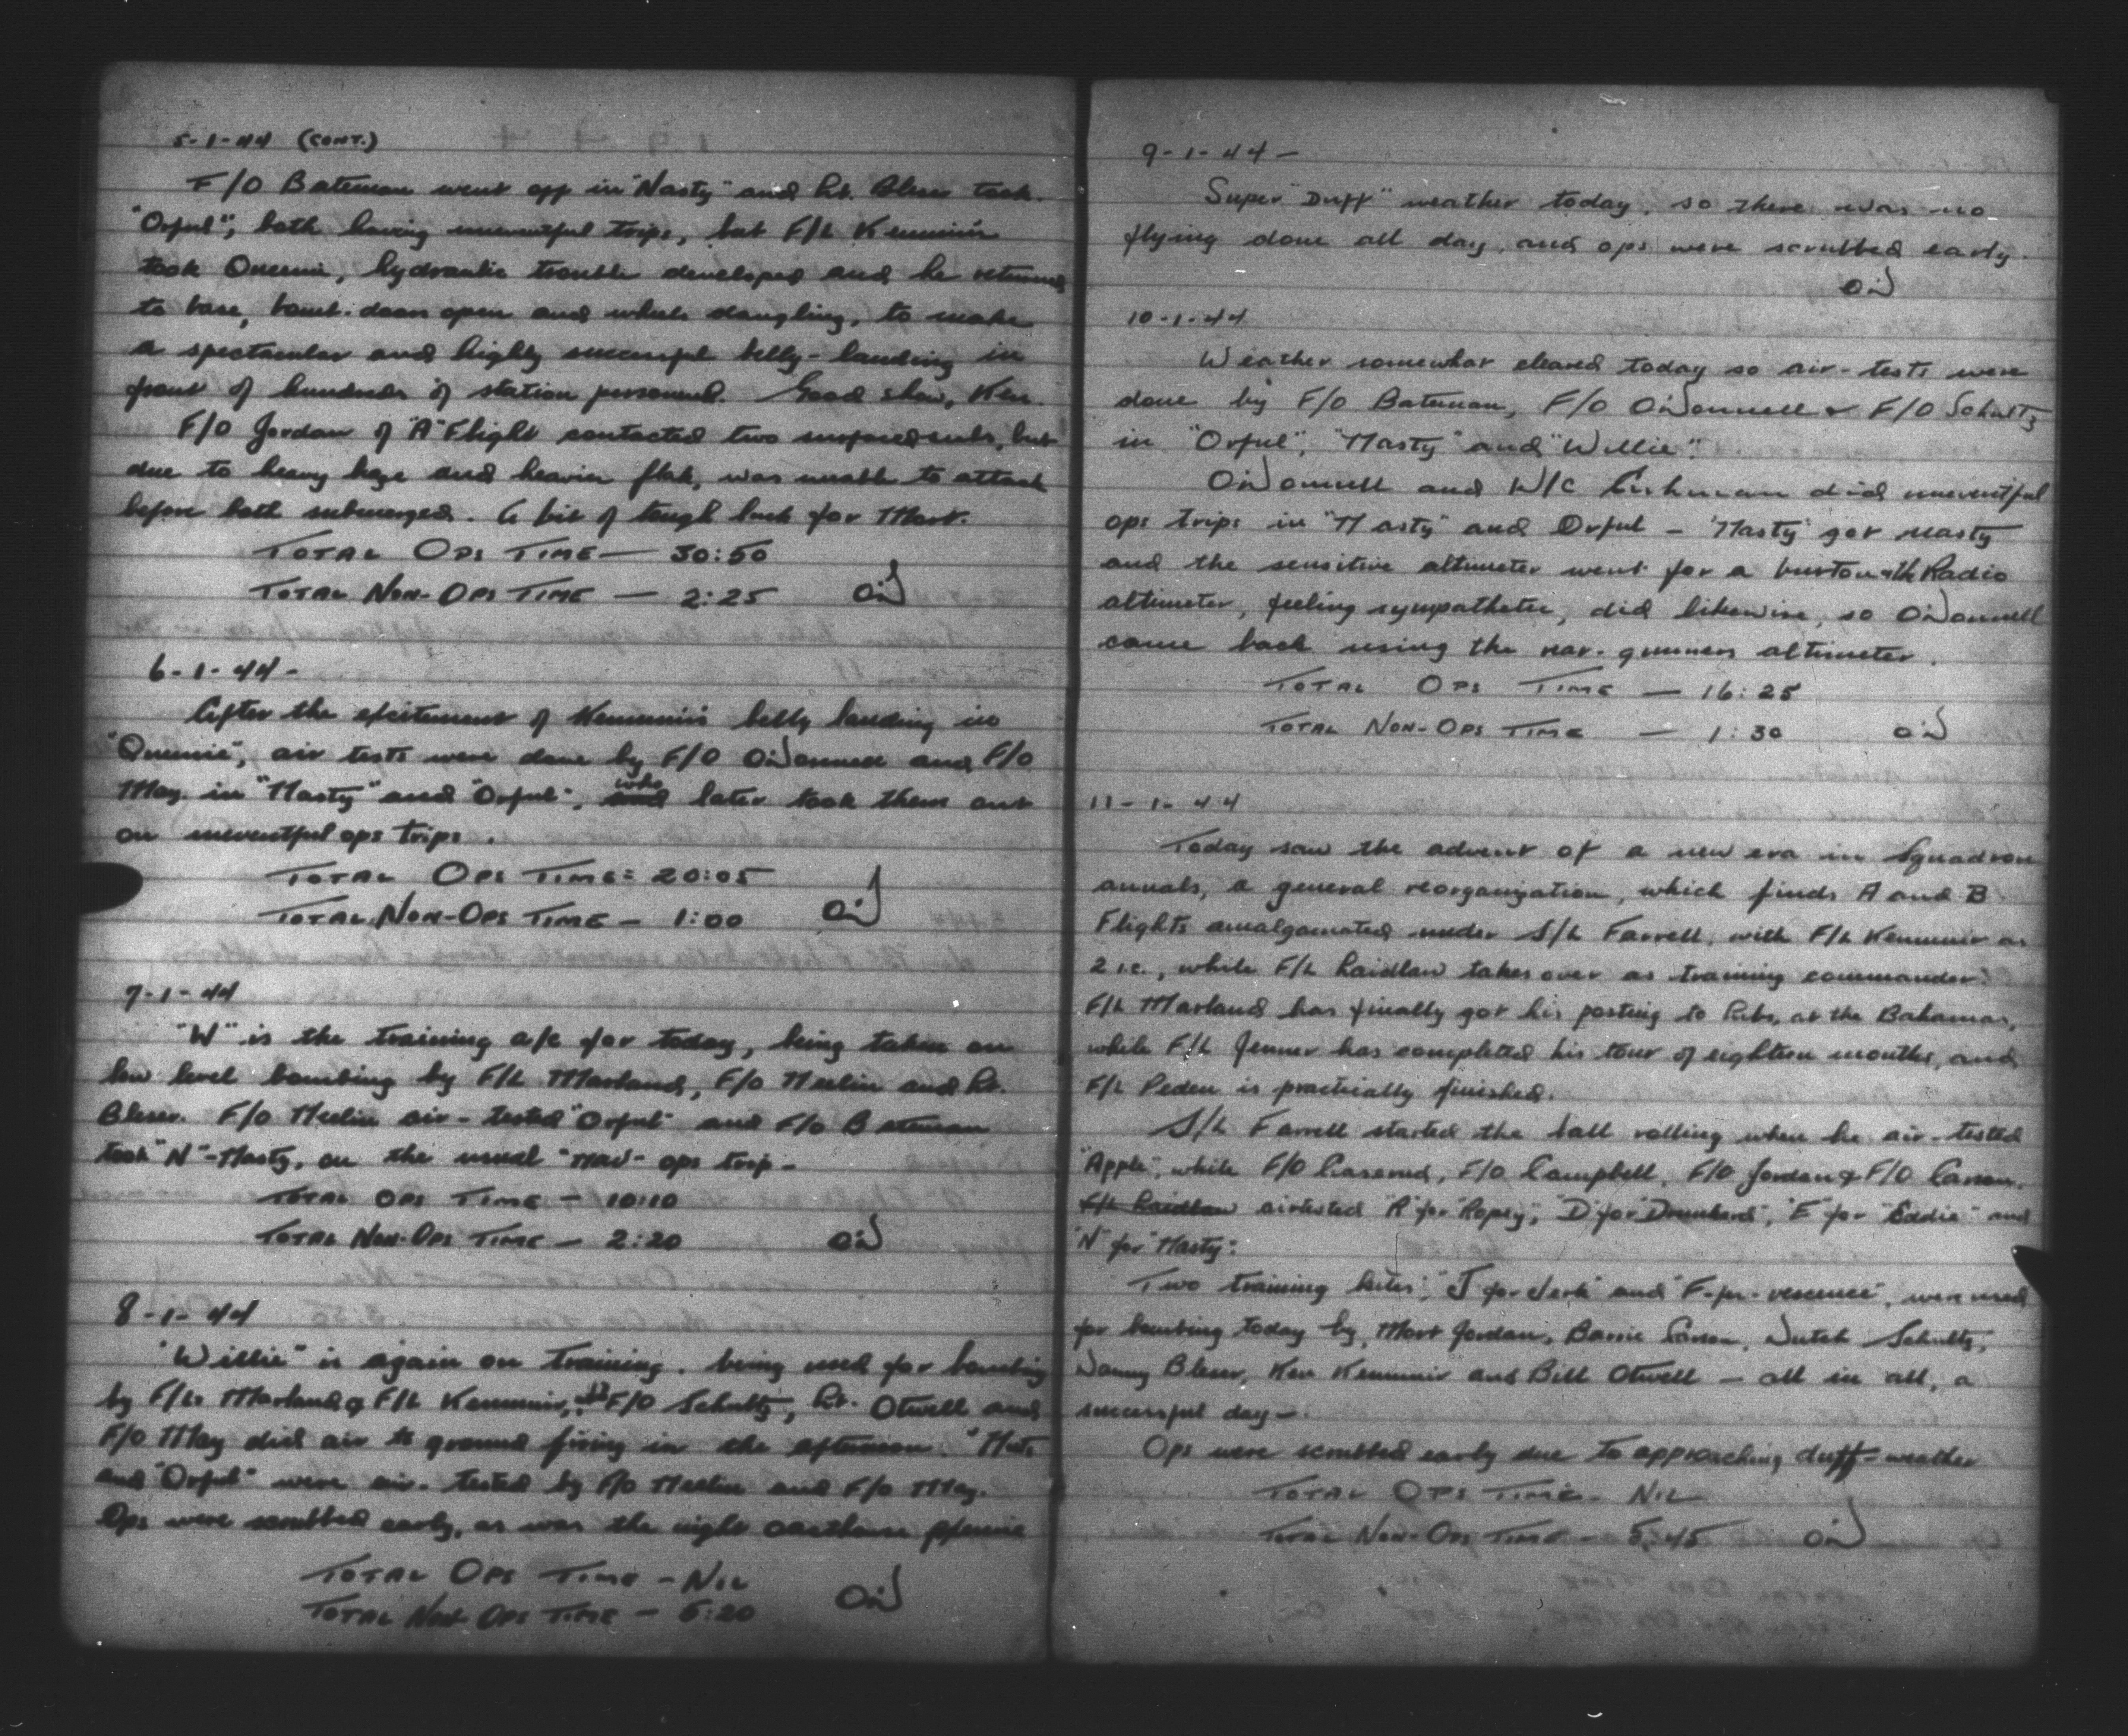 5-1-44 (CONT.)
F/O Bateman went off in "Nasty" and Lt. Bleser took
"Orful"; both having uneventful trips, but F/L Kemmis'r
took Queenie, hydraulic trouble developed and he returned
to base, bomb-doors open and wheels dangling, to make
a spectacular and highly successful belly-landing in
front of hundreds of station personnel. Good show, Ken.
F/O Jordan of "A" Flight contacted two surfaced subs, but
due to heavy haze and heavier flak, was unable to attack
before both submerged. A bit of tough luck for Mort.
TOTAL OPS TIME — 30:50
TOTAL NON-OPS TIME — 2:25 O'D
6-1-44 -
After the excitement of Kemmir's belly landing in
"Queenie", air tests were done by F/O O'Donnell and F/O
May in "Nasty" and "Orful", who later took them out
on uneventful ops trips.
TOTAL OPS TIME = 20:05
TOTAL NON-OPS TIME — 1:00 O'D
7-1-44
"W" is the training a/c for today, being taken on
low level bombing by F/L Marland, F/O Neelin and Lt.
Bleser. F/O Neelin air-tested "Orful" and F/O Bateman
took "N"-Nasty, on the usual "nav" ops trip -
TOTAL OPS TIME — 10:10
TOTAL NON-OPS TIME — 2:20 O'D
8-1-44
"Willie" is again on training, being used for bombing
by F/Ls Marland & F/L Kemmir, F/O Schultz, Lt. Otwell and
F/O May did air to ground firing in the afternoon.
and "Orful" were air-tested by F/O Neelin and F/O May.
Ops were scrubbed early, as was the night
TOTAL OPS TIME — NIL
TOTAL NON OPS TIME — 5:20 O'D
9-1-44 —
Super "Duff" weather today, so there was no
flying done all day, and ops were scrubbed early.
O'D
10-1-44
Weather somewhat cleared today so air-tests were
done by F/O Bateman, F/O O'Donnell & F/O Schultz
in "Orful", "Nasty" and "Willie".
O'Donnell and W/C Cushman did uneventful
ops trips in "Nasty" and Orful — "Nasty" got nasty
and the sensitive altimeter went for a burton, the Radio
altimeter, feeling sympathetic, did likewise, so O'Donnell
came back using the rear-gunners altimeter.
TOTAL OPS TIME — 16:25
TOTAL NON-OPS TIME — 1:30 O'D
11-1-44
Today saw the advent of a new era in Squadron
annals, a general reorganization, which finds A and B
Flights amalgamated under S/L Farrell, with F/L Kemmir as
2 i.c., while F/L Laidlaw takes over as training commander.
F/L Marland has finally got his posting to Libs, at the Bahamas,
while F/L Jenner has completed his tour of eighteen months, and
F/L Peden is practically finished.
S/L Farrell started the ball rolling when he air-tested
"Apple", while F/O F/O Campbell, F/O Jordan & F/O Carson,
F/L Laidlaw airtested "R" for "Ropey", "D" for "Drunkard", "E" for "Eddie" and
"N" for "Nasty".
Two training kites, "J for Jerk" and "F-fer-vescence", were used
for bombing today by, Mort Jordan, Barrie Carson, Dutch Schultz,
Danny Bleser, Ken Kemmir and Bill Otwell — all in all, a
successful day —.
Ops were scrubbed early due to approaching duff-weather
TOTAL OPS TIME — NIL
TOTAL NON-OPS TIME — 5:45 O'D